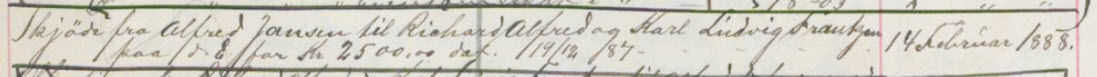 Skjøde fra Alfred Jansen til Richard Alfred og Karl Ludvig Frantzen 14 Februar 1888.
paa d. E. for Kr 2500.00 dat. 19/12 87-